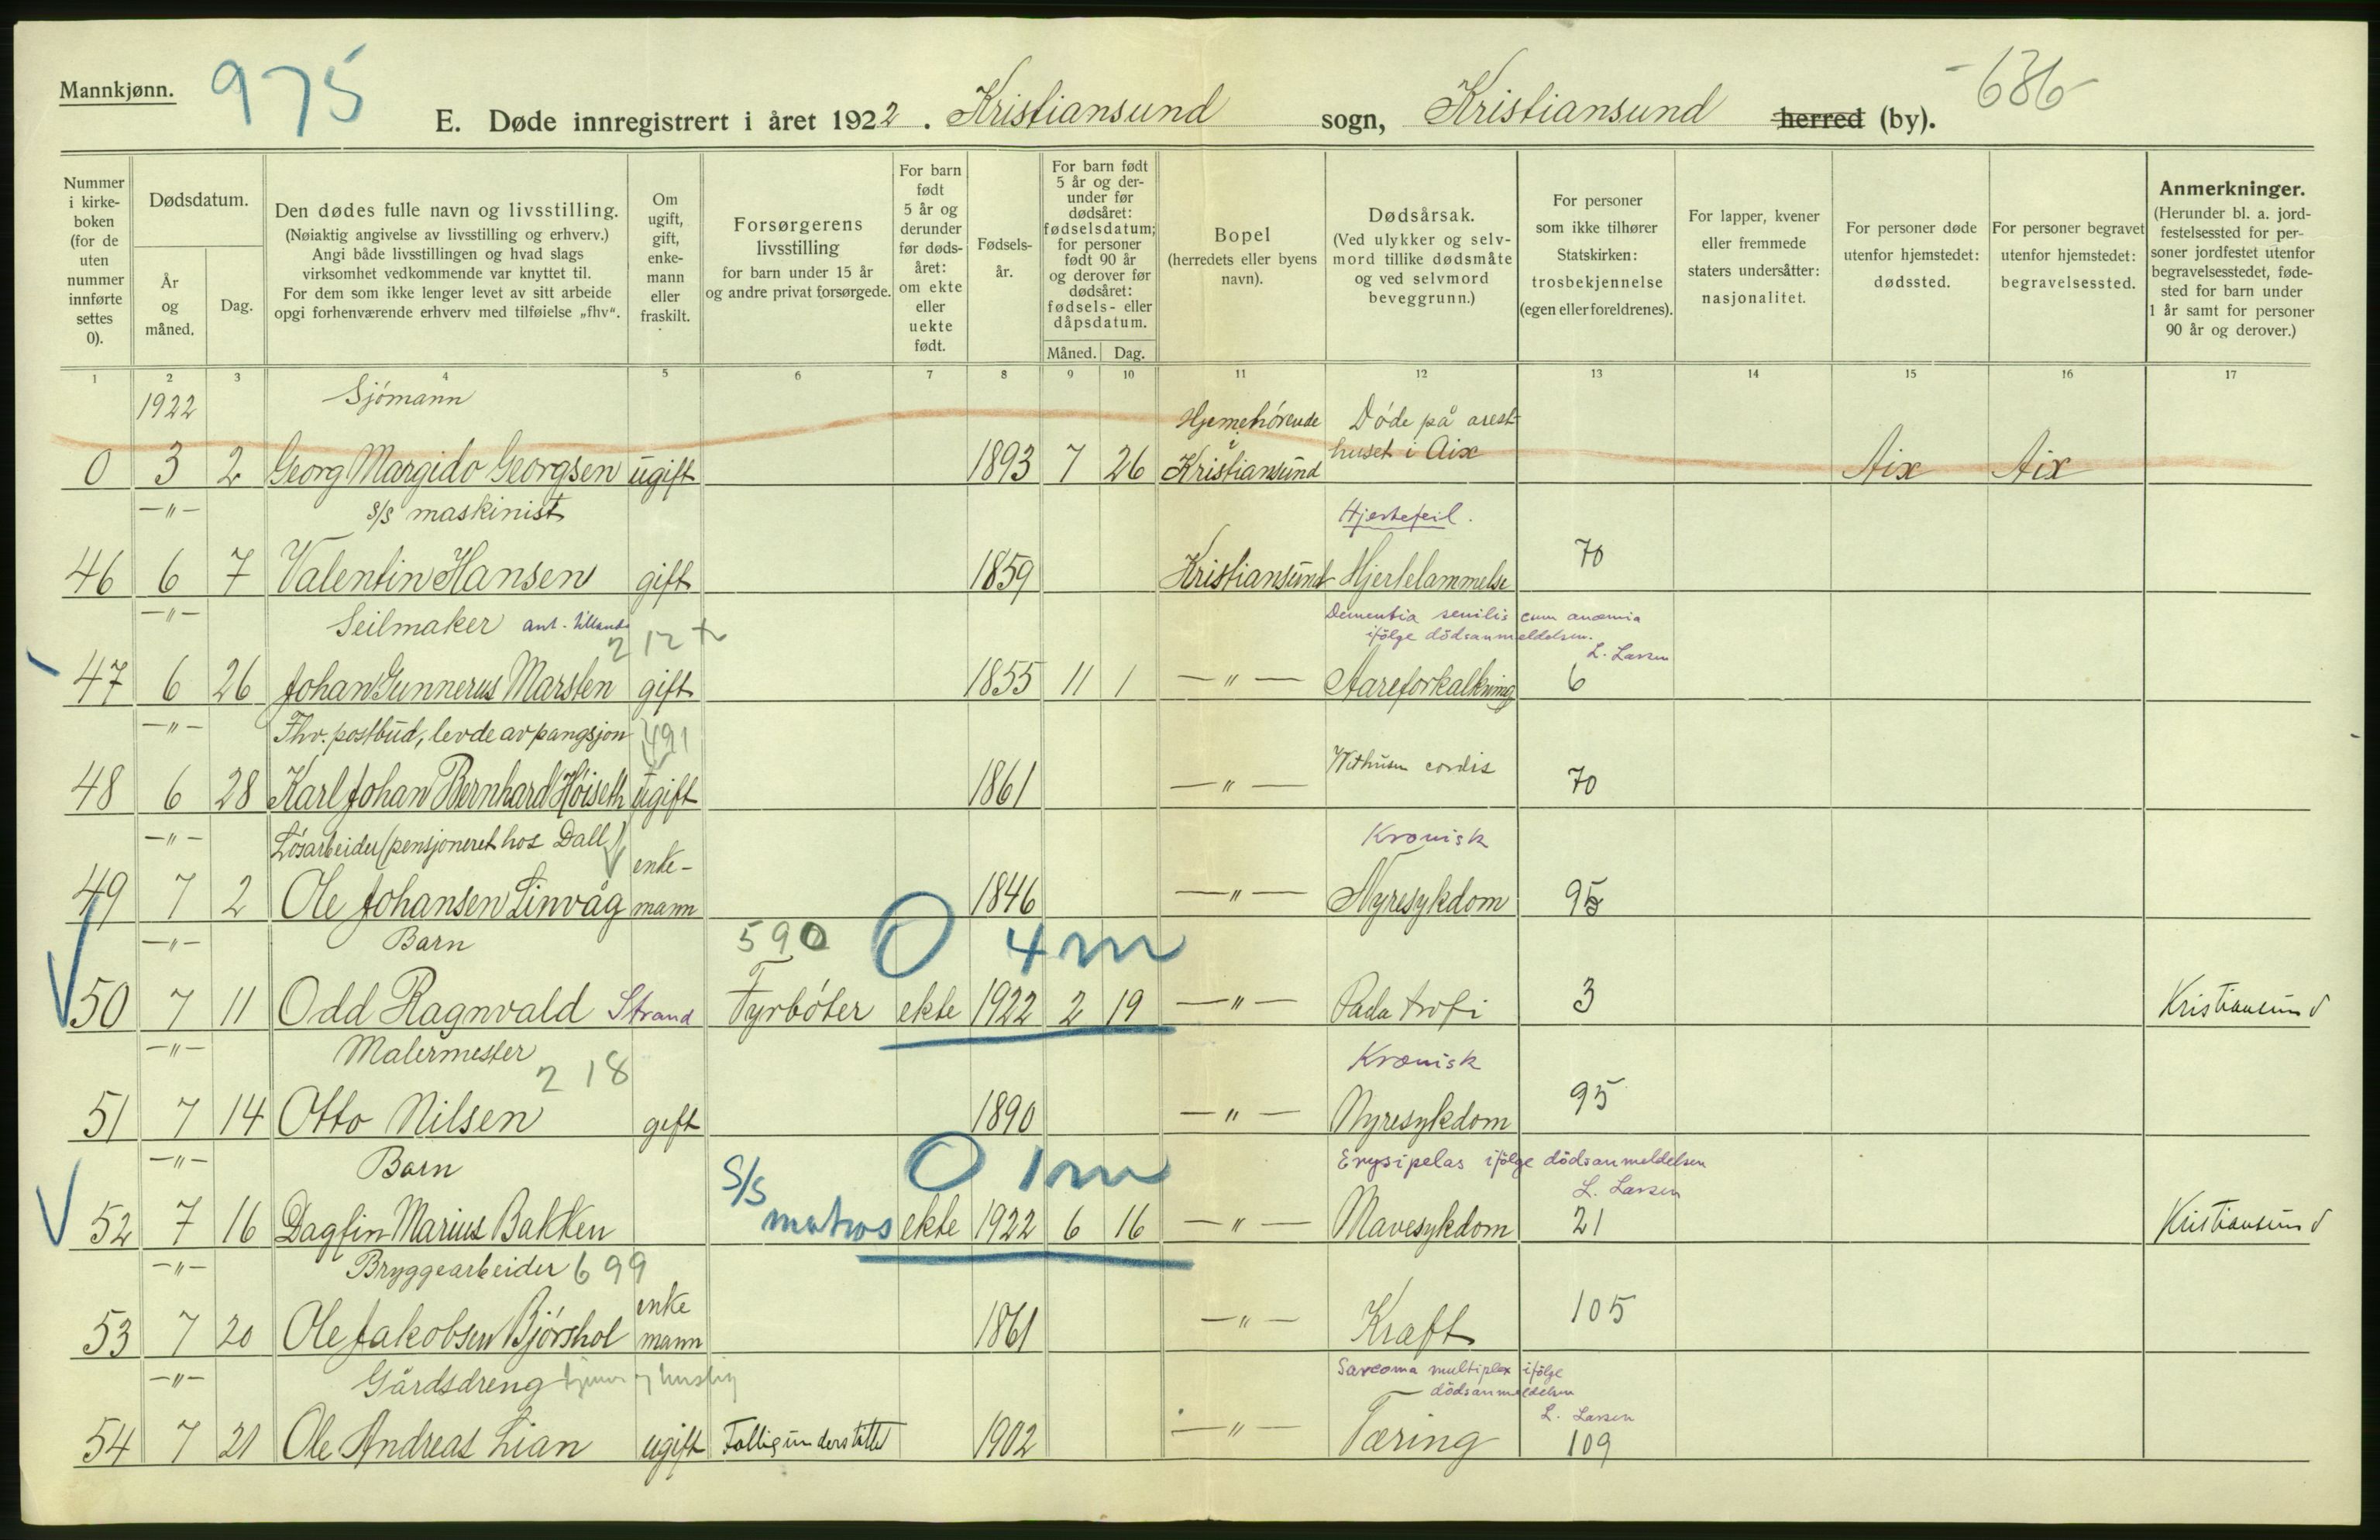 Mannkjønn.
975
E. Døde innregistrert i året 1922. Kristiansund sogn, Kristiansund herred (by).
-636-
Nummer i kirkeboken (for de uten nummer innførte settes 0).
Dødsdatum.
År og måned.
Dag.
Den dødes fulle navn og livsstilling.
(Nøiaktig angivelse av livsstilling og erhverv.)
Angi både livsstillingen og hvad slags
virksomhet vedkommende var knyttet til.
For dem som ikke lenger levet av sitt arbeide
opgi forhenværende erhverv med tilføielse „fhv“.
Om ugift, gift, enkemann eller fraskilt.
Forsørgerens livsstilling
for barn under 15 år
og andre privat forsørgede.
For barn født 5 år og derunder før dødsåret: om ekte eller uekte født.
Fødselsår.
For barn født 5 år og derunder før dødsåret: fødselsdatum; for personer født 90 år og derover før dødsåret: fødsels- eller dåpsdatum.
Måned. Dag.
Bopel
(herredets eller byens navn).
Dødsårsak.
(Ved ulykker og selvmord tillike dødsmåte og ved selvmord beveggrunn.)
For personer som ikke tilhører Statskirken: trosbekjennelse (egen eller foreldrenes).
For lapper, kvener eller fremmede staters undersåtter: nasjonalitet.
For personer døde utenfor hjemstedet: dødssted.
For personer begravet utenfor hjemstedet: begravelsessted.
Anmerkninger.
(Herunder bl. a. jordfestelsessted for personer jordfestet utenfor begravelsesstedet, fødested for barn under 1 år samt for personer 90 år og derover.)
1 2 3 4 5 6 7 8 9 10 11 12 13 14 15 16 17
1922 Sjómann Hjemehörende Døde på arest-
0 3 2 Georg Margido Georgsen ugift 1893 7 26 i Kristiansund huset i Aix Aix Aix
-"- S/S maskinist Hjertefeil.
46 6 7 Valentin Hansen gift 1859 Kristiansund Hjertelammelse 70
-"- Seilmaker 212 Dementia senilis cum anæmia
ifölge dödsanmeldelsen.
L. Larsen
47 6 26 Johan Gunnerus Marsten gift 1855 11 1 -"- Aareforkalkning 6
-"- Fhv. postbud, levde av pangsjon 491
48 6 28 Karl Johan Bernhard Høiseth ugift 1861 -"- cordis 70
-"- Løsarbeider (pensjoneret hos Dall) Kronisk
49 7 2 Ole Johansen Linvåg enkemann 1846 -"- Nyresykdom 95
-"- Barn 590 0 4m
50 7 11 Odd Ragnvald Strand Fyrbóter ekte 1922 2 19 -"- Pada trofi 3 Kristiansund
-"- Malermester 218 Kronisk
51 7 14 Otto Nilsen gift 1890 -"- Nyresykdom 95
-"- Barn S/S 0 1m Erysipelas ifölge dödsanmeldelsen
L. Larsen
52 7 16 Dagfin Marius Bakken matros ekte 1922 6 16 -"- Mavesykdom 21 Kristiansund
-"- Bryggearbeider 699
53 7 20 Ole Jakobsen Bjórshol enkemann 1861 -"- Kræft 105
-"- Gårdsdreng Sarcoma multiplex ifölge
dödsanmeldelsen
L. Larsen
54 7 21 Ole Andreas Lian ugift Fattigunderstöttet 1902 -"- Tæring 109